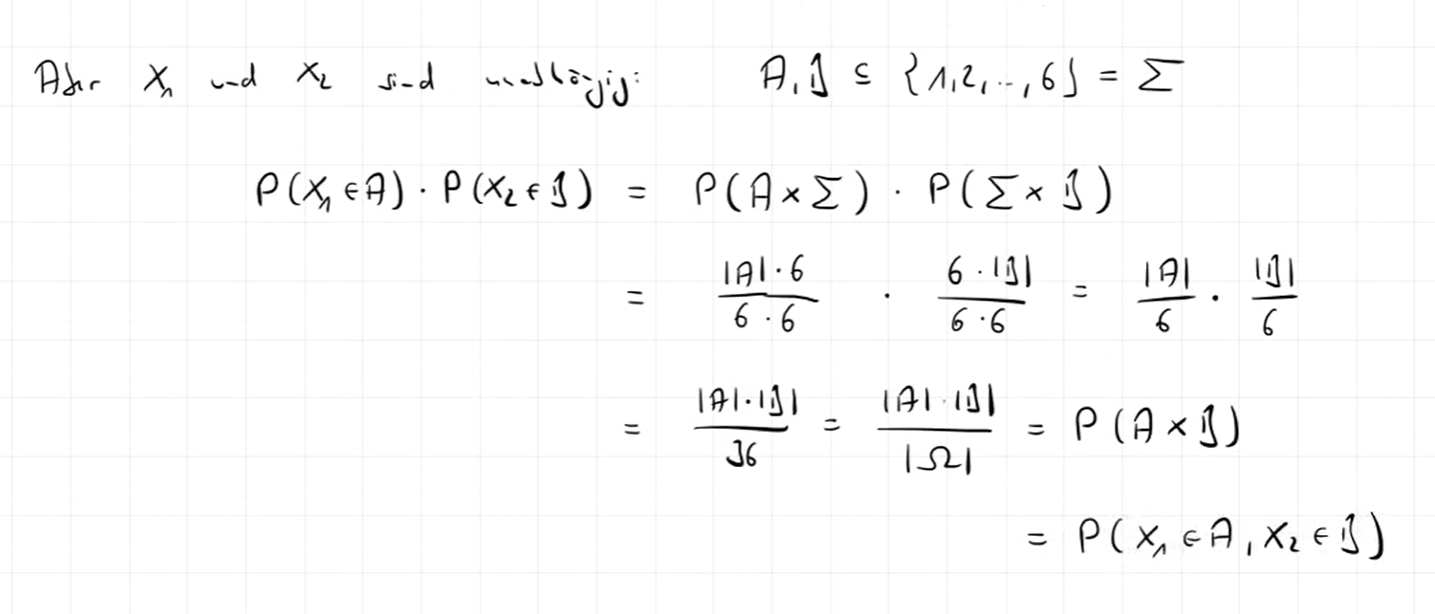 Aber X₁ und X₂ sind unabhängig: A, B ⊆ {1,2,...,6} = Σ
P(X₁ ∈ A) · P(X₂ ∈ B) = P(A × Σ) · P(Σ × B)
= |A| · 6 / 6 · 6 · 6 · |B| / 6 · 6 = |A| / 6 · |B| / 6
= |A| · |B| / 36 = |A| · |B| / |Ω| = P(A × B)
= P(X₁ ∈ A, X₂ ∈ B)